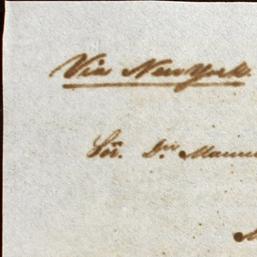 Via New York.
Sor. Dn. Manu